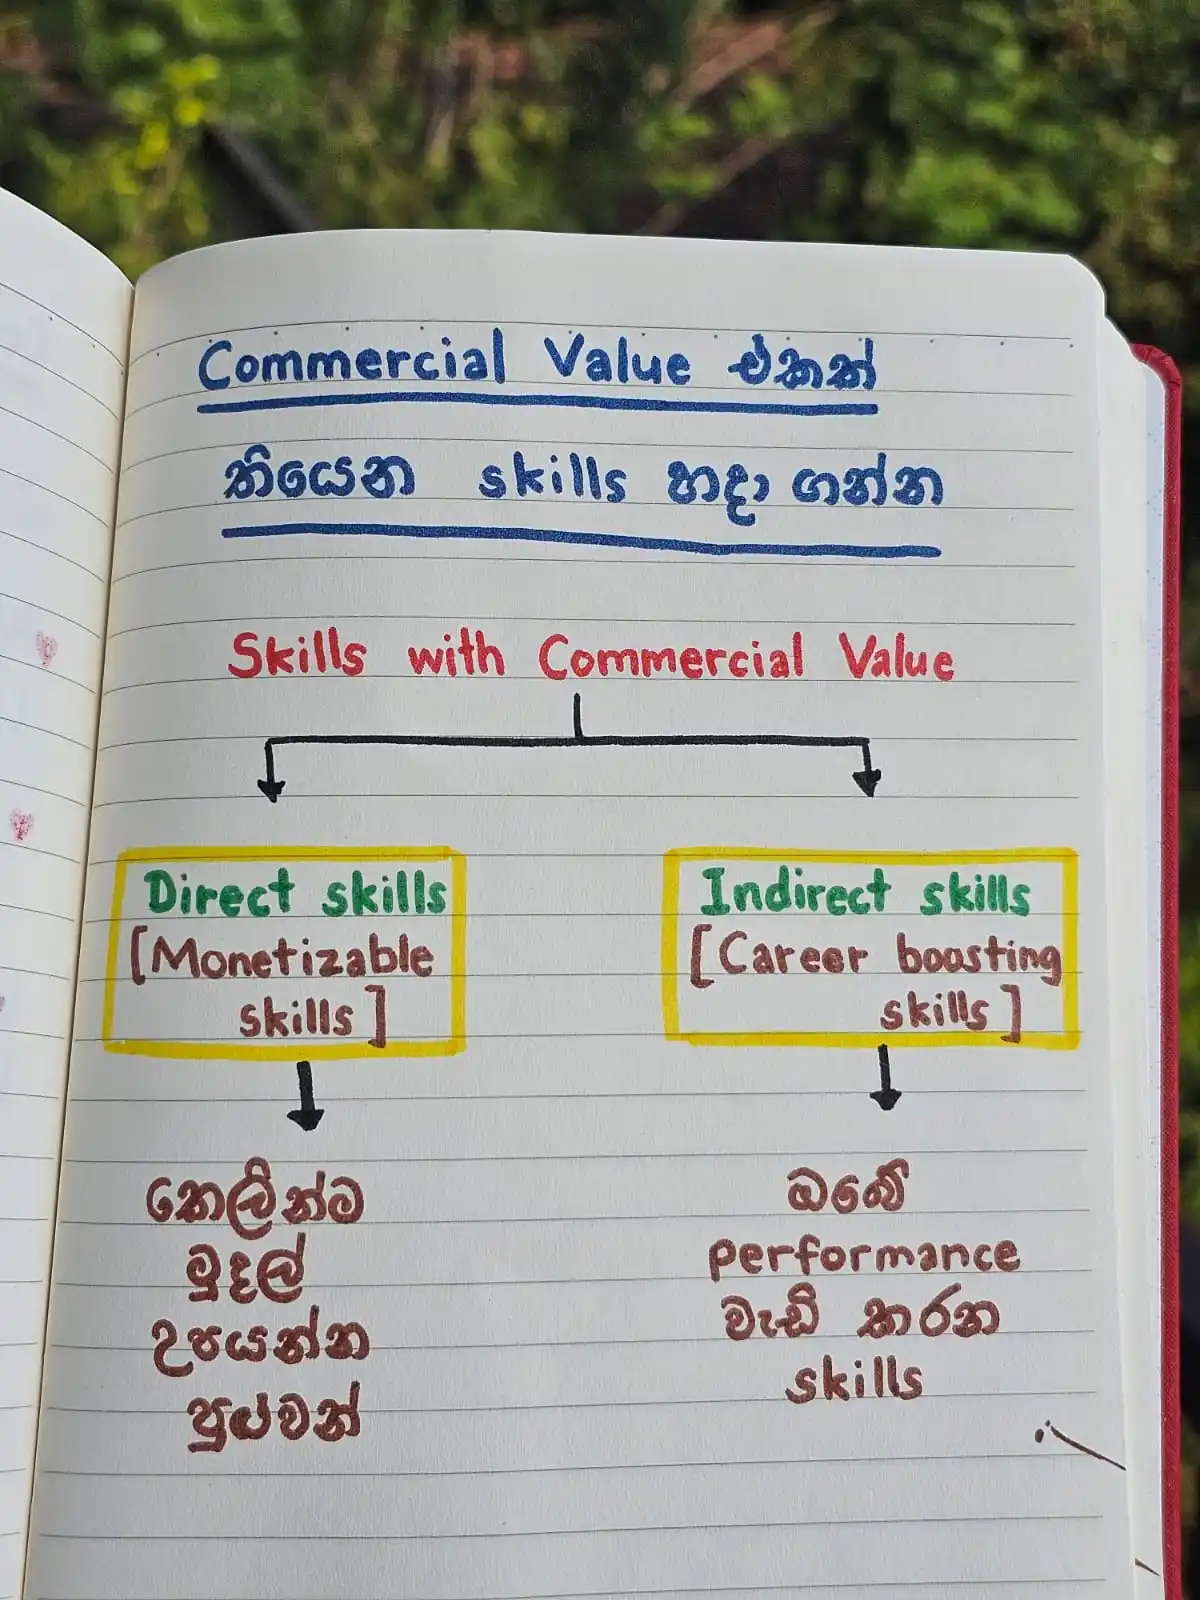 Commercial Value එකක්
තියෙන skills හදා ගන්න
Skills with Commercial Value
Direct skills
[Monetizable
skills]
Indirect skills
[Career boosting
skills]
කෙලින්ම
මුදල්
උපයන්න
පුළුවන්
ඔබේ
performance
වැඩි කරන
skills